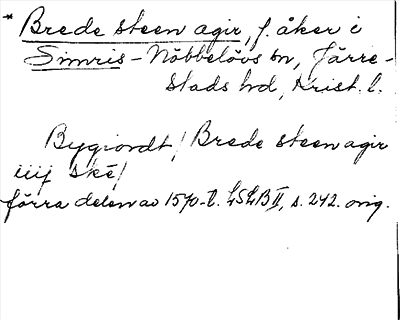 * Brede steen agir, f. åker i
Simris-Nöbbelövs sn, Järre-
stads hd, Krist. l.
Bygiordt / Brede steen agir
iiij skē /
förra delen av 1570-t. LSLB II, s. 242. orig.